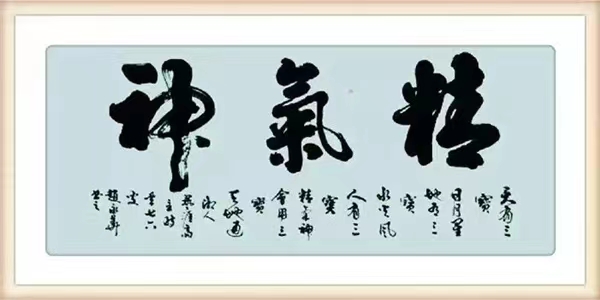 精氣神
天有三
寶
日月星
地有三
寶
水火風
人有三
寶
精氣神
會用三
寶
天地通
年七六
叟